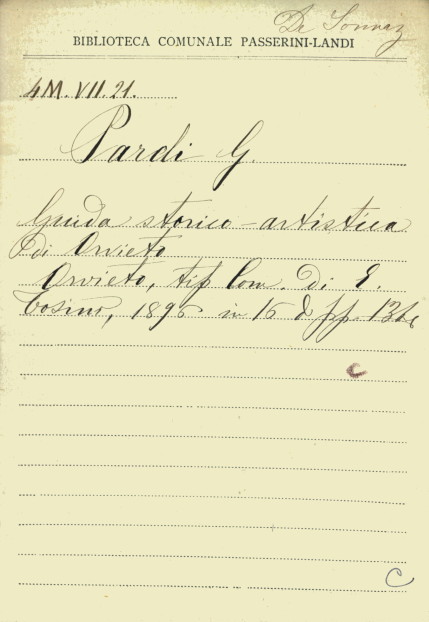 De Sonnaz
BIBLIOTECA COMUNALE PASSERINI-LANDI
4M.VII.21.
Pardi G.
Guida storico-artistica
di Orvieto
Orvieto, tip Com. di E.
Tosini, 1896 in 16 d pp.
C
C